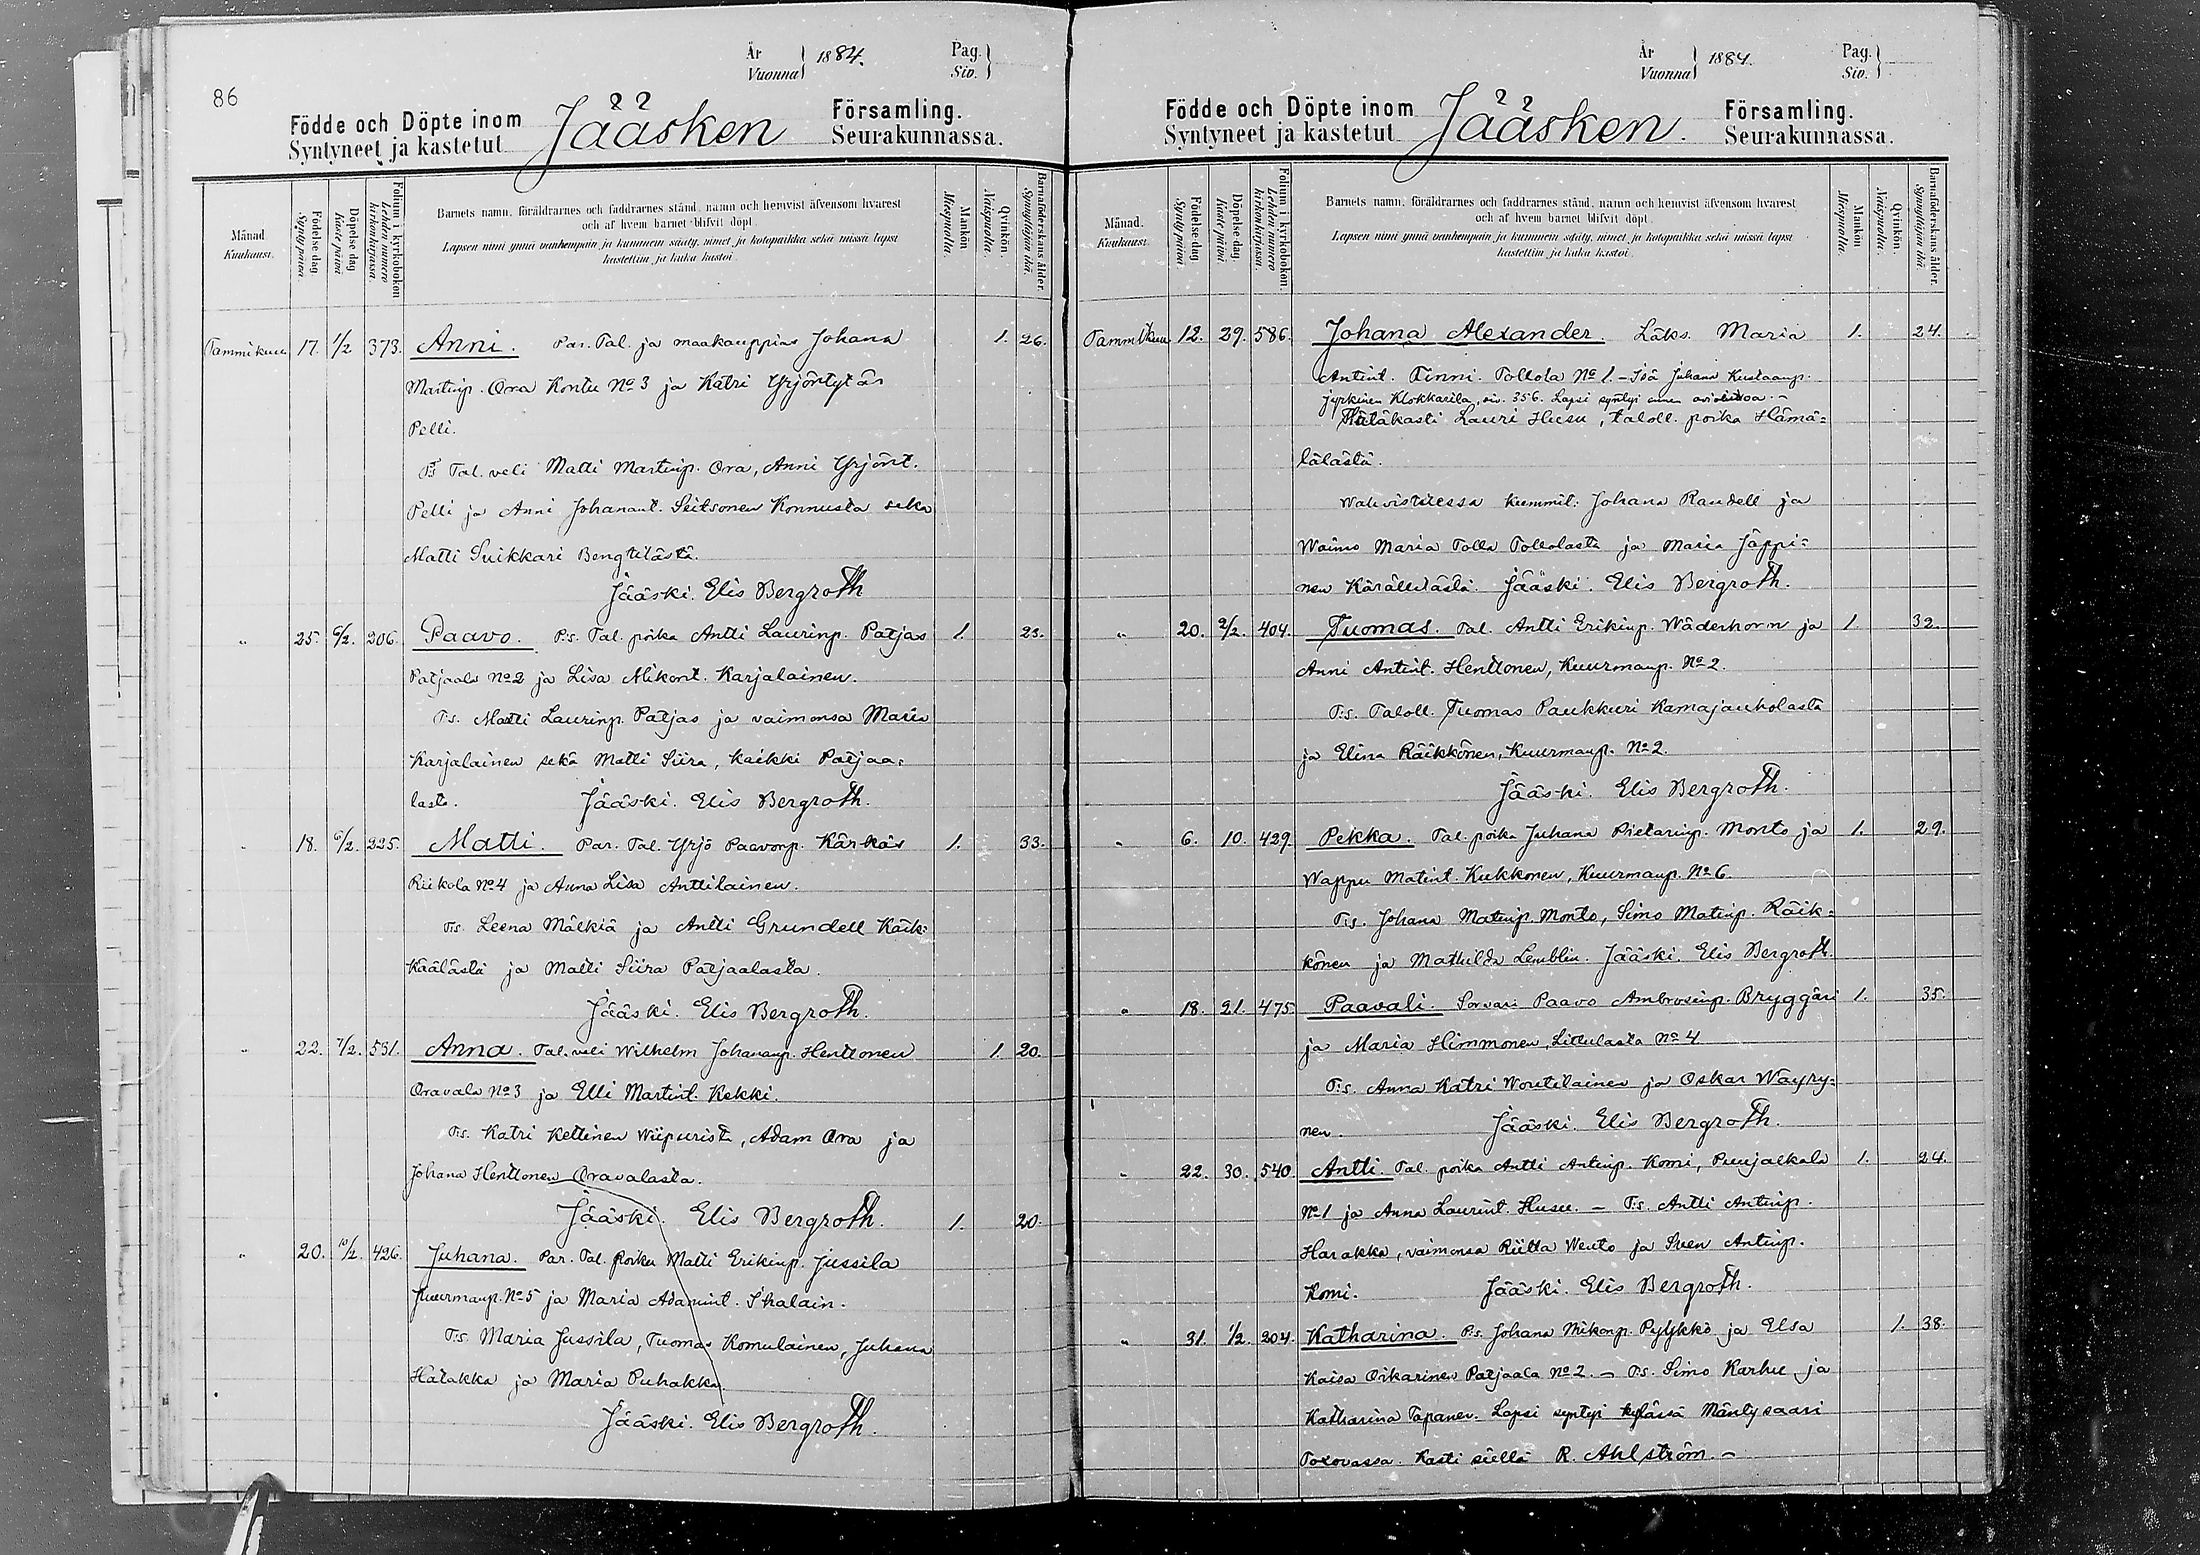 86
År
Vuonna 1884.
Pag.
Siv.
Födde och Döpte inom
Syntyneet ja kastetut
Jääsken
Församling.
Seurakunnassa.
Månad.
Kuukausi.
Födelse dag
Synty päivä.
Döpelse dag
Kaste päivä
Folium i kyrkobokon
Lehden numero
kirkonkirjassa.
Barnets namn, föräldrarnes och faddrarnes stånd, namn och hemvist äfvensom hvarest
och af hvem barnet blifvit döpt.
Lapsen nimi ynnä vanhempain ja kummein sääty, nimet ja kotopaikka sekä missä lapsi
kastettiin ja kuka kastoi.
Mankön
Miespuolia.
Qvinkön.
Naispuolia.
Barnaföderskans ålder.
Synnyttäjän ikä.
Tammikuu 17. 1/2 373. Anni. Par. Tal. ja maakauppias Johana 1. 26.
Martinp. Ora Kontu No 3 ja Katri Yrjöntytär
Pelli.
Ts Tal. veli Matti Martinp. Ora, Anni Yrjönt.
Pelli ja Anni Johanant. Seitsonen Konnusta seka
Matti Suikkari Bengtilästä.
Jääski. Elis Bergroth
" 25. 6/2. 206. Paavo. Ps. Tal. poika Antti Laurinp. Patjas 1. 23.
Patjaala No 2 ja Lisa Mikont. Karjalainen.
T:s. Matti Laurinp. Patjas ja vaimonsa Maria
Karjalainen sekä Matti Siira, kaikki Patjaa=
lasta. Jääski. Elis Bergroth.
" 18. 6/2. 225. Matti. Par. Tal. Yrjö Paavonp. Kärkäs 1. 33.
Riikola No 4 ja Anna Lisa Anttilainen.
T:s. Leena Mälkiä ja Antti Grundell Käik=
käälästä ja Matti Siira Patjaalasta.
Jääski. Elis Bergroth.
" 22. 7/2. 531. Anna. Tal. veli Wilhelm Johananp. Henttonen 1. 20.
Oravala No 3 ja Elli Martint. Kekki.
T:s. Katri Kettinen Wiipurista, Adam Ora ja
Johana Henttonen Oravalasta.
Jääski. Elis Bergroth. 1. 20.
" 20. 10/2. 426. Juhana. Par. Tal. poika Matti Erikinp. Jussila
Kuurmanp. No 5 ja Maria Adamint. Ihalain.
T:s. Maria Jussila, Tuomas Komulainen, Juhana
Hatakka ja Maria Puhakka.
Jääski. Elis Bergroth.
År
Vuonna 1884.
Pag.
Siv.
Födde och Döpte inom
Syntyneet ja kastetut
Jääsken.
Församling.
Seurakunnassa.
Månad.
Kuukausi.
Födelse dag
Synty päivä.
Döpelse dag
Kaste päivä.
Folium i kyrkobokon.
Lehden numero
kirkonkirjassa.
Barnets namn, föräldrarnes och faddrarnes stånd, namn och hemvist äfvensom hvarest
och af hvem barnet blifvit döpt.
Lapsen nimi ynnä vanhempain ja kummein sääty, nimet ja kotopaikka sekä missä lapsi
kastettiin ja kuka kastoi.
Mankön
Miespuolia.
Qvinkön.
Naispuolia.
Barnaföderskans ålder.
Synnyttäjän ikä.
Tammikuu 12. 29. 586. Johana Alexander. Läks. Maria 1. 24.
Antint. Tinni. Tollola No 1. - Isä Juhana Kustaanp.
Jyrkinen Klokkarila, siv. 356. Lapsi syntyi ennen avioliittoa. -
Hätäkasti Lauri Husu, taloll. poika Hämä=
lälästä.
Wahvistuessa kummit: Johana Randell ja
Waimo Maria Tolla Tollolasta ja Maria Jäppi=
nen Kärällilästä. Jääski. Elis Bergroth.
" 20. 2/2. 404. Tuomas. Tal. Antti Erikinp. Wäderhorn ja 1. 32.
Anni Antint. Henttonen, Kuurmanp. No 2.
T:s. Taloll. Tuomas Paukkuri Kamajauholasta
ja Elina Räikkönen, Kuurmanp. No 2.
Jääski. Elis Bergroth.
" 6. 10. 429. Pekka. Tal. poika Juhana Pietarinp. Monto ja 1. 29.
Wappu Matint. Kukkonen, Kuurmanp. No 6.
T:s. Johana Matinp. Monto, Simo Matinp. Räik=
könen ja Mathilda Lemblin. Jääski. Elis Bergroth.
" 18. 21. 475. Paavali. Sorvari Paavo Ambrosinp. Bryggäri 1. 35.
ja Maria Himmonen, Littulasta No 4
T:s. Anna Katri Woutilainen ja Oskar Wäyry=
nen. Jääski. Elis Bergroth.
" 22. 30. 540. Antti. Tal. poika Antti Antinp. Komi, Puujalkala 1. 24.
No 1 ja Anna Laurint. Husu. - T:s. Antti Antinp.
Harakka, vaimonsa Riitta Wento ja Sven Antinp.
Komi. Jääski. Elis Bergroth.
" 31. 1/2. 204. Katharina. P:s. Johana Mikonp. Pylkkö ja Elsa 1. 38.
Kaisa Oikarinen Patjaala No 2. - T:s. Simo Karhu ja
Katharina Tapanen. Lapsi syntyi kylässä Mäntysaari
Toxovassa. Kasti siellä R. Ahlström. -